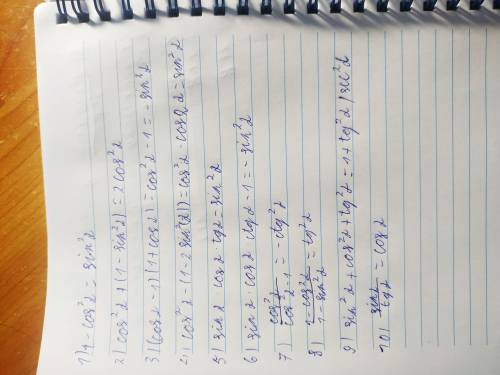 1) 1 - cos²α = sin²α
2) cos²α + (1 - sin²α) = 2cos²α
3) (cosα - 1)(1 + cosα) = cos²α - 1 = - sin²α
4) cos²α - (1 - 2 sin²(α)) = cos²α - cos2α = sin²α
5) sinα cosα tgα = sin²α
6) sinα cosα ctgα - 1 = - sin²α
7) cos²α / cos²α - 1 = - ctg²
8) 1 - cos²α / 1 - sin²α = tg²α
9) sin²α + cos²α + tg²α = 1 + tg²α / sec²α
10) sinα / tgα = cosα